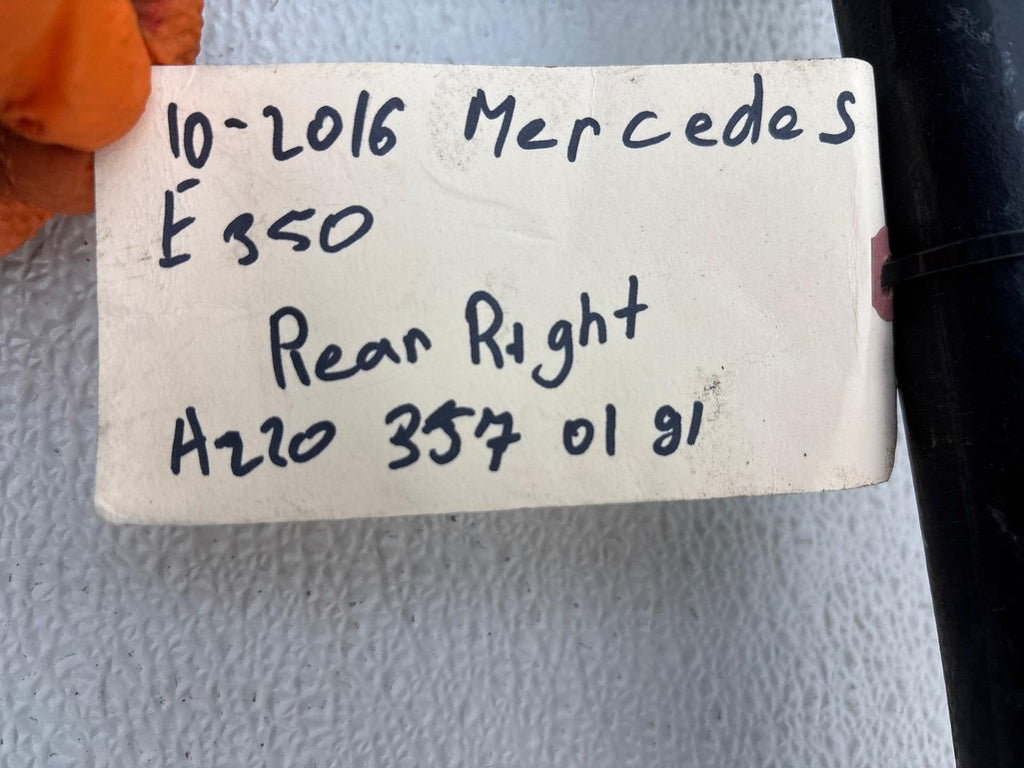 10-2016 Mercedes
E350
Rear Right
A220 357 01 91